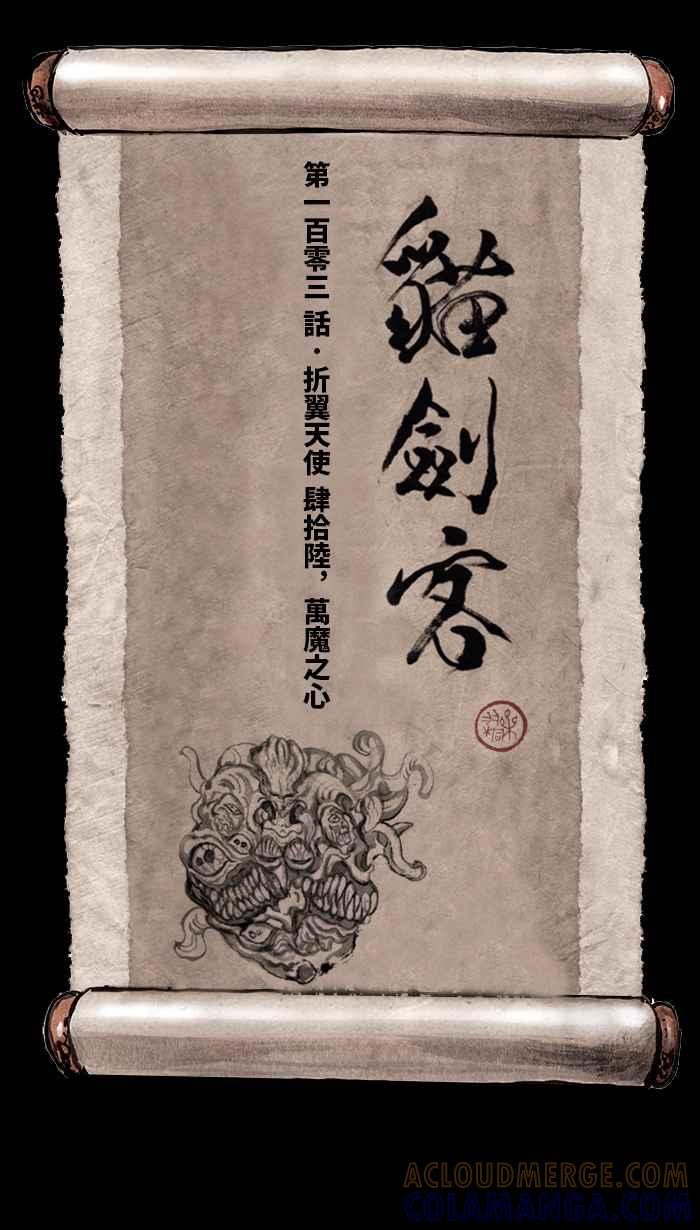 貓劍客
第一百零三 話・折翼天使 肆拾陸, 萬魔之心
ACLOUDMERGE.COM
COLAMANGA.COM